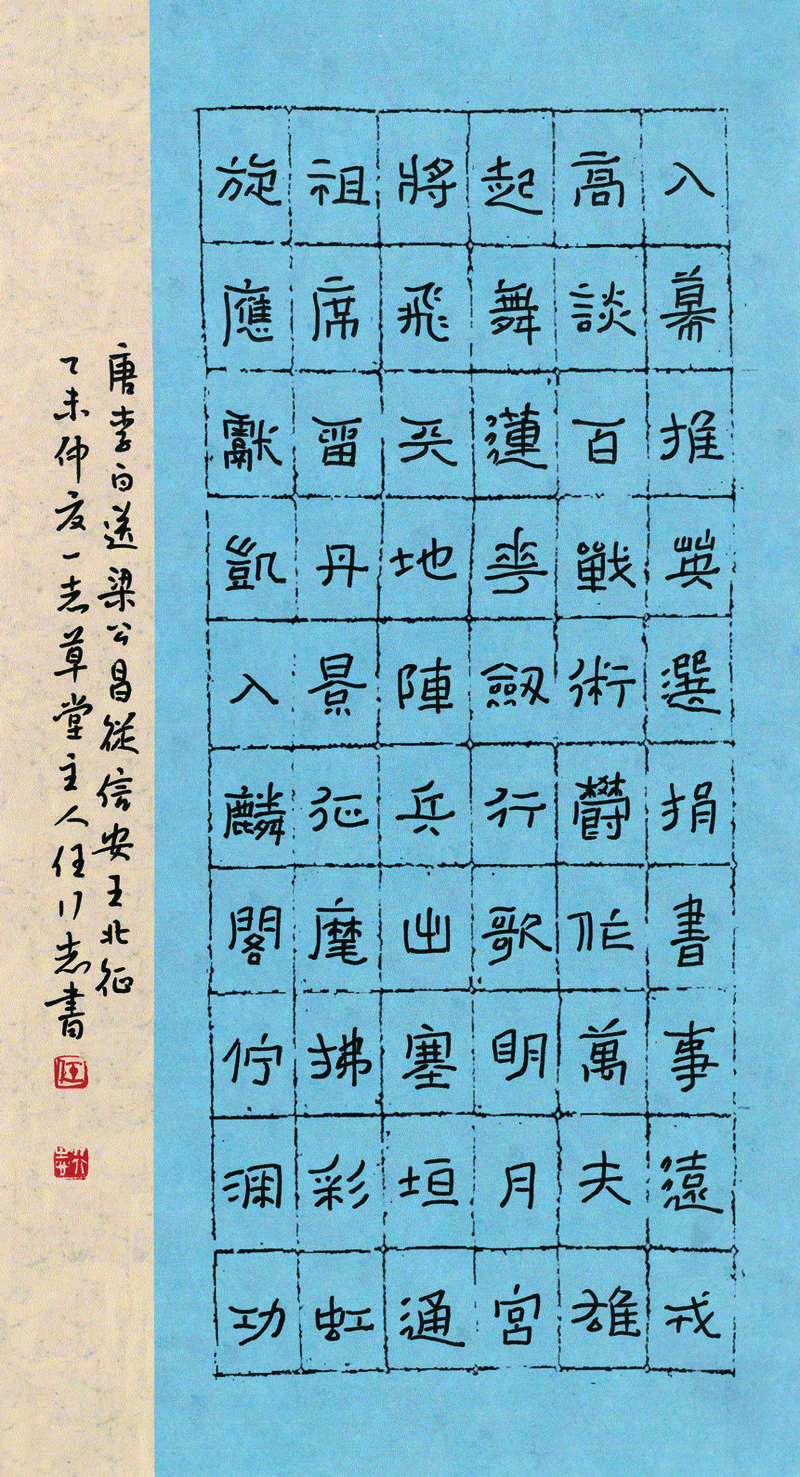 入幕推英選捐書事遠戎
高談百戰術鬱作萬夫雄
起舞蓮華劒行歌明月宮
將飛天地陣兵出塞垣通
祖席留丹景征麾拂彩虹
旋應獻凱入麟閣佇深功
唐李白送梁公昌從信安王北征
乙未仲夏一志草堂主人任行志書
任